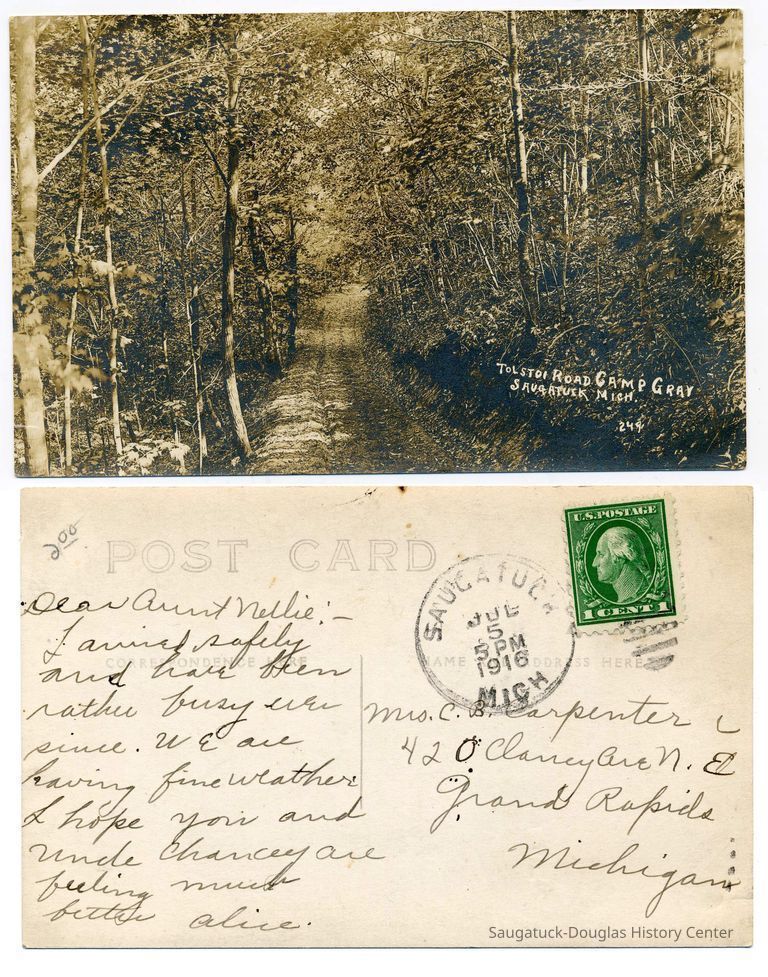 TOLSTOI ROAD CAMP GRAY
SAUGATUCK MICH.
244
200
POST CARD
U.S. POSTAGE
1 CENT 1
SAUGATUCK
JUL
5
5 PM
1916
MICH
CORRESPONDENCE HERE
NAME AND ADDRESS HERE
Dear Aunt Nellie:-
I arrived safely
and have been
rather busy ever
since. We are
having fine weather
I hope you and
Uncle Chancey are
feeling much
better Alice.
Mrs. C. B. Carpenter
420 Clancy Ave N. E
Grand Rapids
Michigan
Saugatuck-Douglas History Center